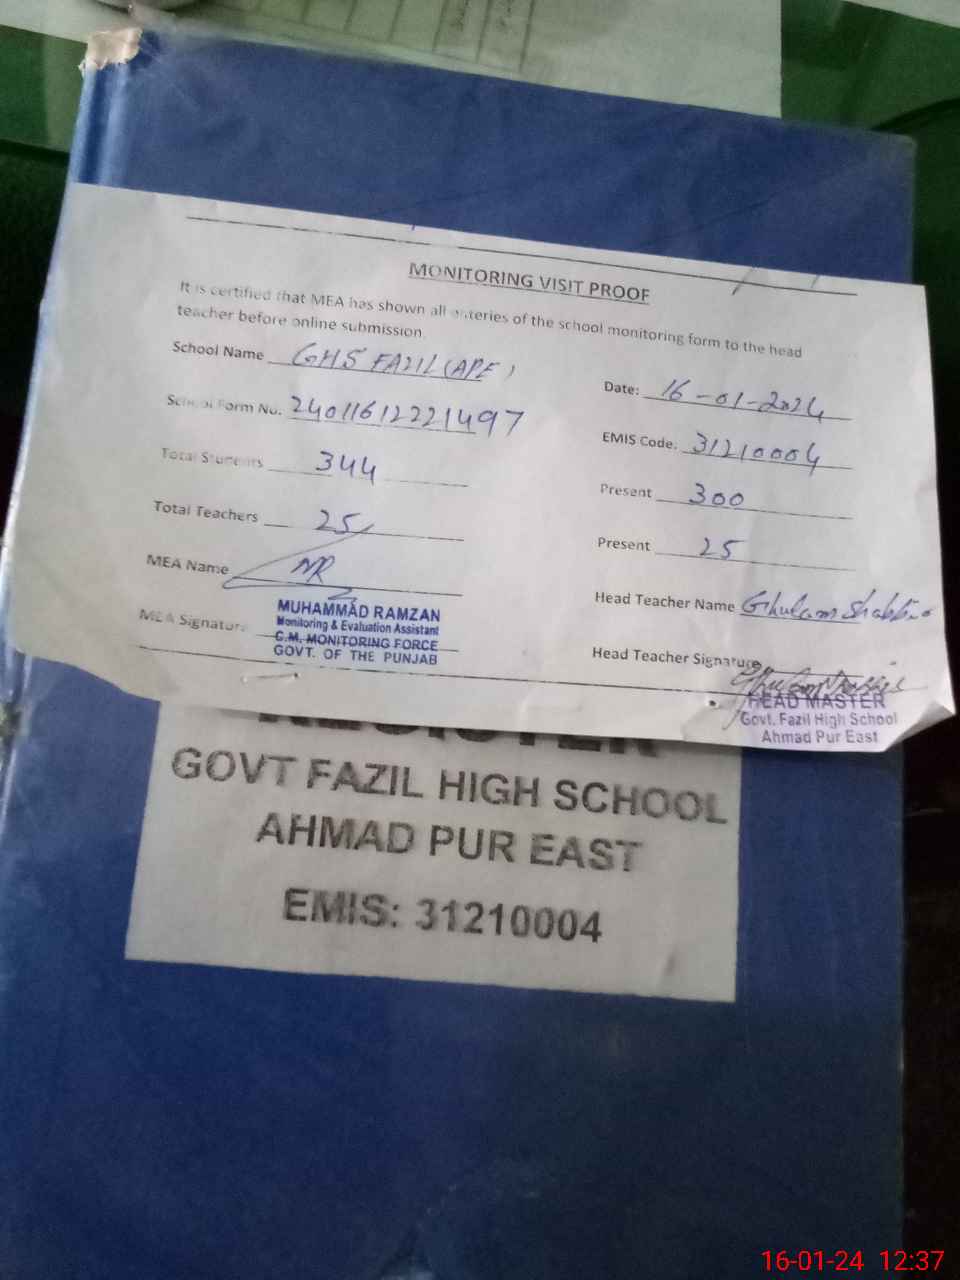 MONITORING VISIT PROOF
It is certified that MEA has shown all enteries of the school monitoring form to the head
teacher before online submission.
School Name GHS FAZIL (APE)
Date: 16-01-2024
School Form No. 2401161221497
EMIS Code: 31210004
Total Students 344
Present 300
Total Teachers 25
Present 25
MEA Name MR
Head Teacher Name Ghulam Shabbir
MEA Signature
MUHAMMAD RAMZAN
Monitoring & Evaluation Assistant
C.M. MONITORING FORCE
GOVT. OF THE PUNJAB
Head Teacher Signature
HEAD MASTER
Govt. Fazil High School
Ahmad Pur East
REGISTER
GOVT FAZIL HIGH SCHOOL
AHMAD PUR EAST
EMIS: 31210004
16-01-24 12:37